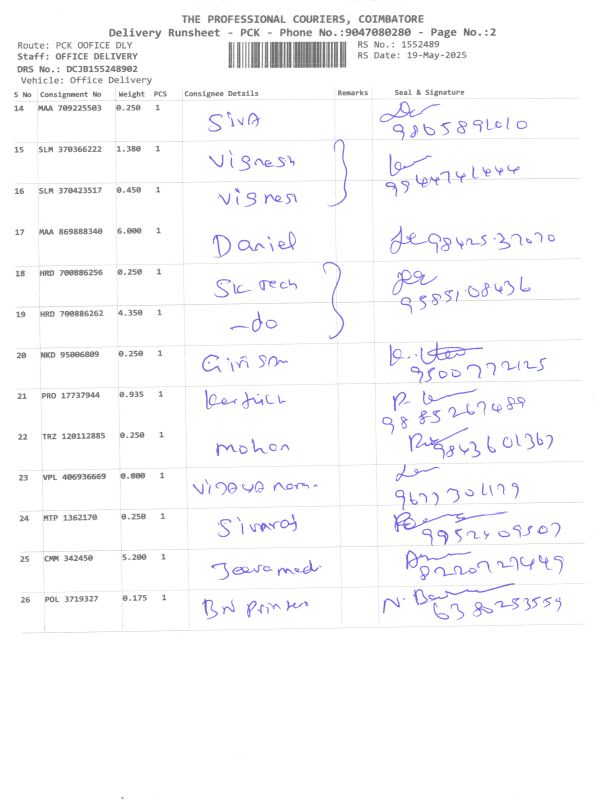 THE PROFESSIONAL COURIERS, COIMBATORE
Delivery Runsheet - PCK - Phone No.:9047080280 - Page No.:2
Route: PCK OOFICE DLY RS No.: 1552489
Staff: OFFICE DELIVERY RS Date: 19-May-2025
DRS No.: DCJB155248902
Vehicle: Office Delivery
S No Consignment No Weight PCS Consignee Details Remarks Seal & Signature
14 MAA 709225503 0.250 1 SivA
9865891010
15 SLM 370366222 1.380 1 Vignesh
9944741444
16 SLM 370423517 0.450 1 Vignesh
17 MAA 869888340 6.000 1 Daniel 98425 37070
18 HRD 700886256 0.250 1 SK Tech
95851 08436
19 HRD 700886262 4.350 1 -do
20 NKD 95006809 0.250 1
9500772125
21 PRO 17737944 0.935 1
9885267489
22 TRZ 120112885 0.250 1 mohan 9843601367
23 VPL 406936669 0.800 1
9677301179
24 MTP 1362170 0.250 1 Sivaraj
9952409507
25 CMM 342450 5.200 1 Jeevamedi
8220727449
26 POL 3719327 0.175 1 BN Printers
6380253559